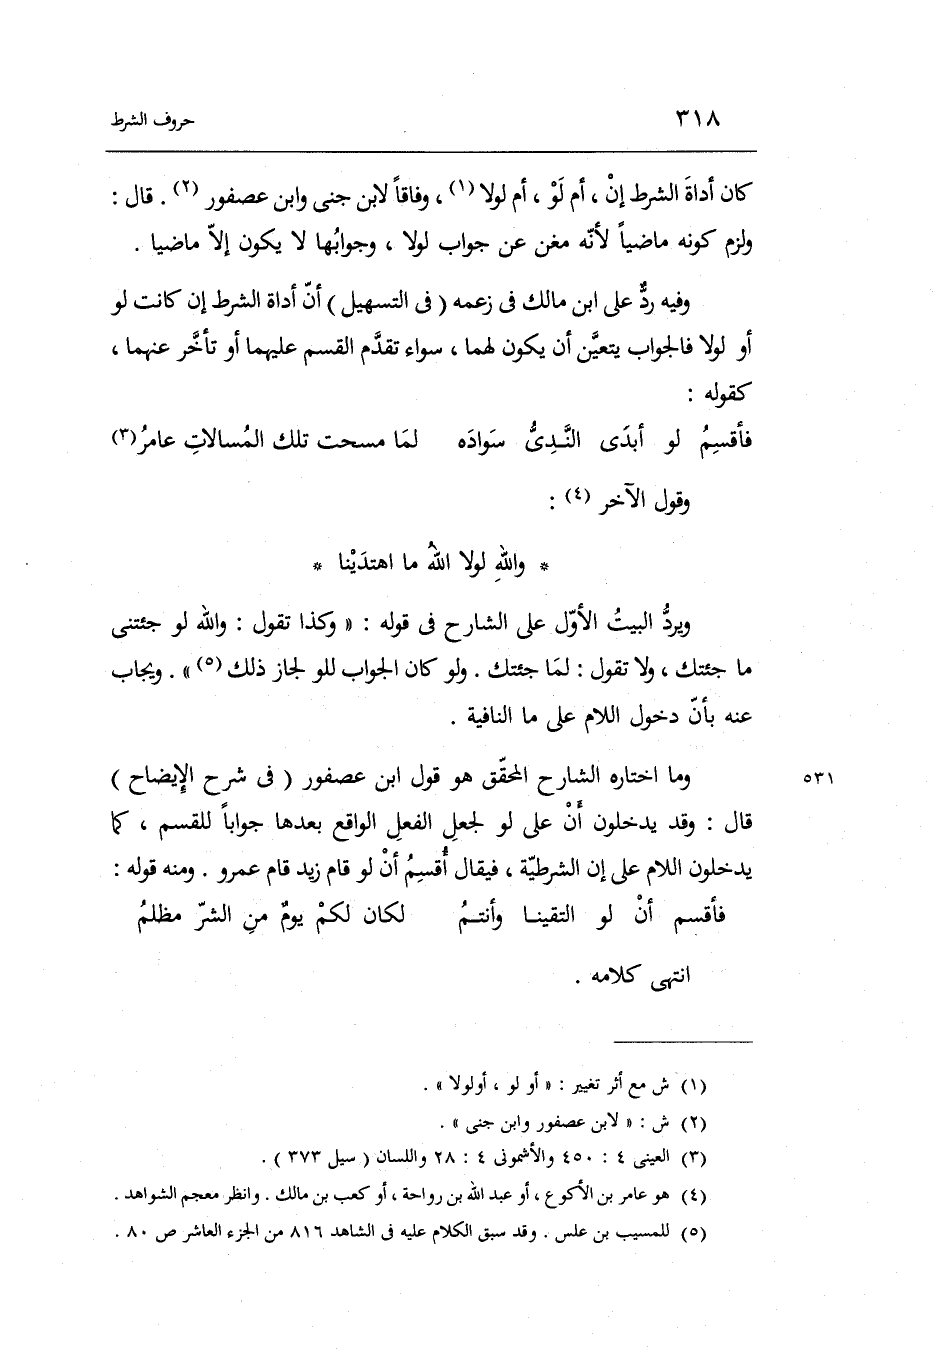 ٣١٨ حروف الشرط
كان أداةَ الشرط إنْ ، أم لَوْ ، أم لولا (١) ، وفاقاً لابن جنى وابن عصفور (٢) . قال :
ولزم كونه ماضياً لأنّه مغن عن جواب لولا ، وجوابُها لا يكون إلاّ ماضيا .
وفيه ردٌّ على ابن مالك فى زعمه ( فى التسهيل ) أنّ أداة الشرط إن كانت لو
أو لولا فالجواب يتعيَّن أن يكون لهما ، سواء تقدَّم القسم عليهما أو تأخَّر عنهما ،
كقوله :
فأقسِمُ لو أبدَى النَّـدِىُّ سَوادَه لمَا مسحت تلك المُسالاتِ عامرُ (٣)
وقول الآخر (٤) :
* واللهِ لولا اللهُ ما اهتدَيْنا *
ويردُّ البيتُ الأوّل على الشارح فى قوله : « وكذا تقول : والله لو جئتنى
ما جئتك ، ولا تقول : لمَا جئتك . ولو كان الجواب للو لجاز ذلك (٥) » . ويجاب
عنه بأنّ دخول اللام على ما النافية .
وما اختاره الشارح المحقّق هو قول ابن عصفور ( فى شرح الإيضاح ) ٥٣١
قال : وقد يدخلون أَنْ على لو لجعلِ الفعلِ الواقع بعدها جواباً للقسم ، كما
يدخلون اللام على إن الشرطيّة ، فيقال أُقسِمُ أنْ لو قام زيد قام عمرو . ومنه قوله :
فأقسم أنْ لو التقينـا وأنتـمُ لكان لكمْ يومٌ منِ الشرّ مظلمُ
انتهى كلامه .
(١) ش مع أثر تغيير : « أو لو ، أولولا » .
(٢) ش : « لابن عصفور وابن جنى » .
(٣) العينى ٤ : ٤٥٠ والأشمونى ٤ : ٢٨ واللسان ( سيل ٣٧٣ ) .
(٤) هو عامر بن الأكوع ، أو عبد الله بن رواحة ، أو كعب بن مالك . وانظر معجم الشواهد .
(٥) للمسيب بن علس . وقد سبق الكلام عليه فى الشاهد ٨١٦ من الجزء العاشر ص ٨٠ .